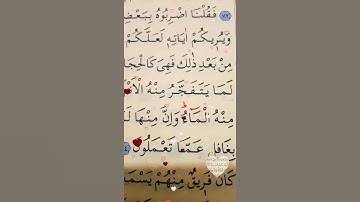 ﴿٧٢﴾ فَقُلْنَا اضْرِبُوهُ بِبَعْضِ
وَيُرِيكُمْ اٰيَاتِهٖ لَعَلَّكُمْ
مِنْ بَعْدِ ذٰلِكَ فَهِيَ كَالْحِجَا
لَمَا يَتَفَجَّرُ مِنْهُ الْاَنْ
مِنْهُ الْمَاءُ وَاِنَّ مِنْهَا لَ
بِغَافِلٍ عَمَّا تَعْمَلُونَ
كَانَ فَرِيقٌ مِنْهُمْ يَسْمَ